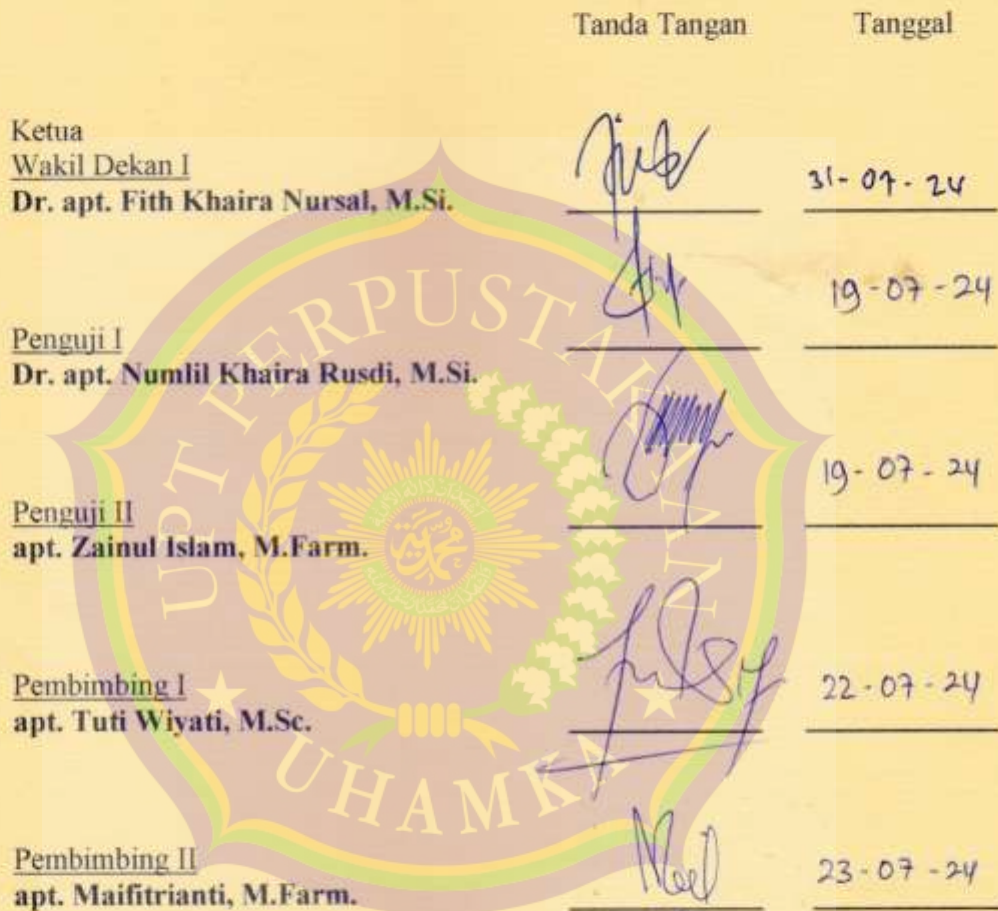 Tanda Tangan Tanggal
Ketua
Wakil Dekan I
Dr. apt. Fith Khaira Nursal, M.Si. 31-07-24
19-07-24
Penguji I
Dr. apt. Numlil Khaira Rusdi, M.Si.
19-07-24
Penguji II
apt. Zainul Islam, M.Farm.
Pembimbing I 22-07-24
apt. Tuti Wiyati, M.Sc.
Pembimbing II 23-07-24
apt. Maifitrianti, M.Farm.
UPT PERPUSTAKAAN
UHAMKA